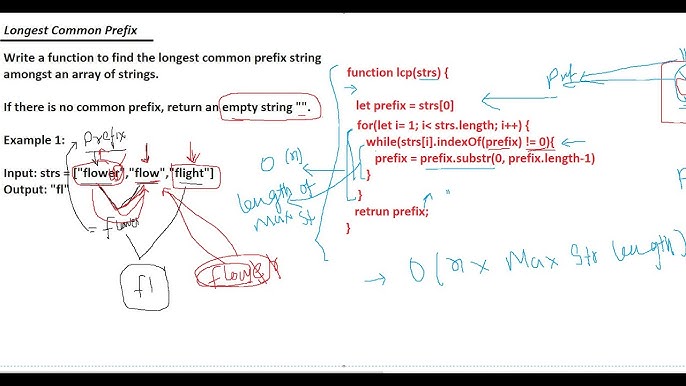 Longest Common Prefix
Write a function to find the longest common prefix string
amongst an array of strings.
If there is no common prefix, return an empty string "".
Example 1:
Prefix
Input: strs = ["flower","flow","flight"]
Output: "fl"
= flower
fl
function lcp(strs) {
let prefix = strs[0]
for(let i= 1; i< strs.length; i++) {
while(strs[i].indexOf(prefix) != 0){
prefix = prefix.substr(0, prefix.length-1)
}
}
retrun prefix;
}
O(n)
length of
max st
"
→ O(n x Max Str length)